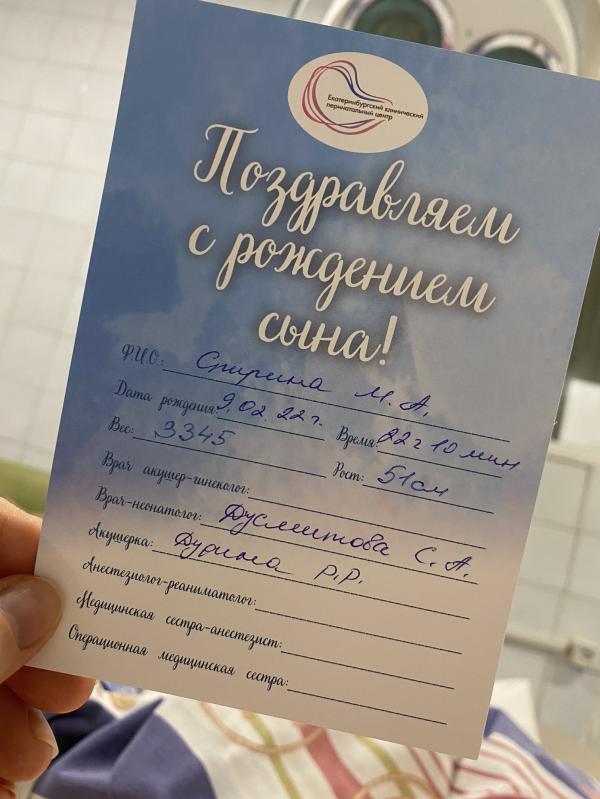 Екатеринбургский клинический
перинатальный центр
Поздравляем
с рождением
сына!
Ф.И.О.: Спирина М. А.
Дата рождения: 9.02.22г. Время: 22ч 10 мин
Вес: 3345 Рост: 51см
Врач акушер-гинеколог:
Врач-неонатолог: Дусмитова С. А.
Акушерка: Дурина Р.Р.
Анестезиолог-реаниматолог:
Медицинская сестра-анестезист:
Операционная медицинская сестра: